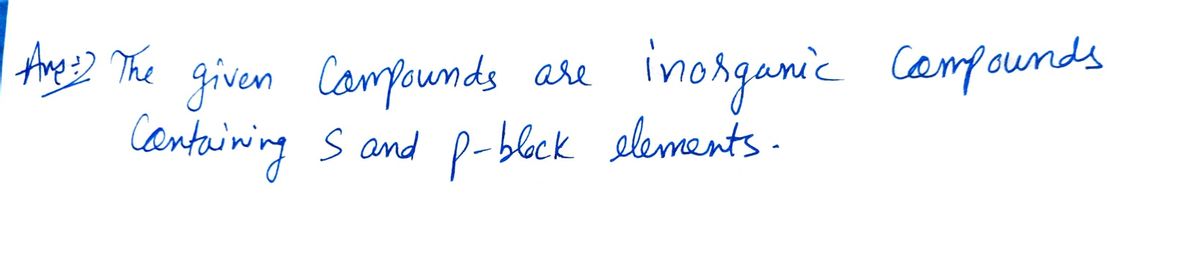 Ans:2 The given Compounds are inorganic Compounds
Containing S and p-block elements.